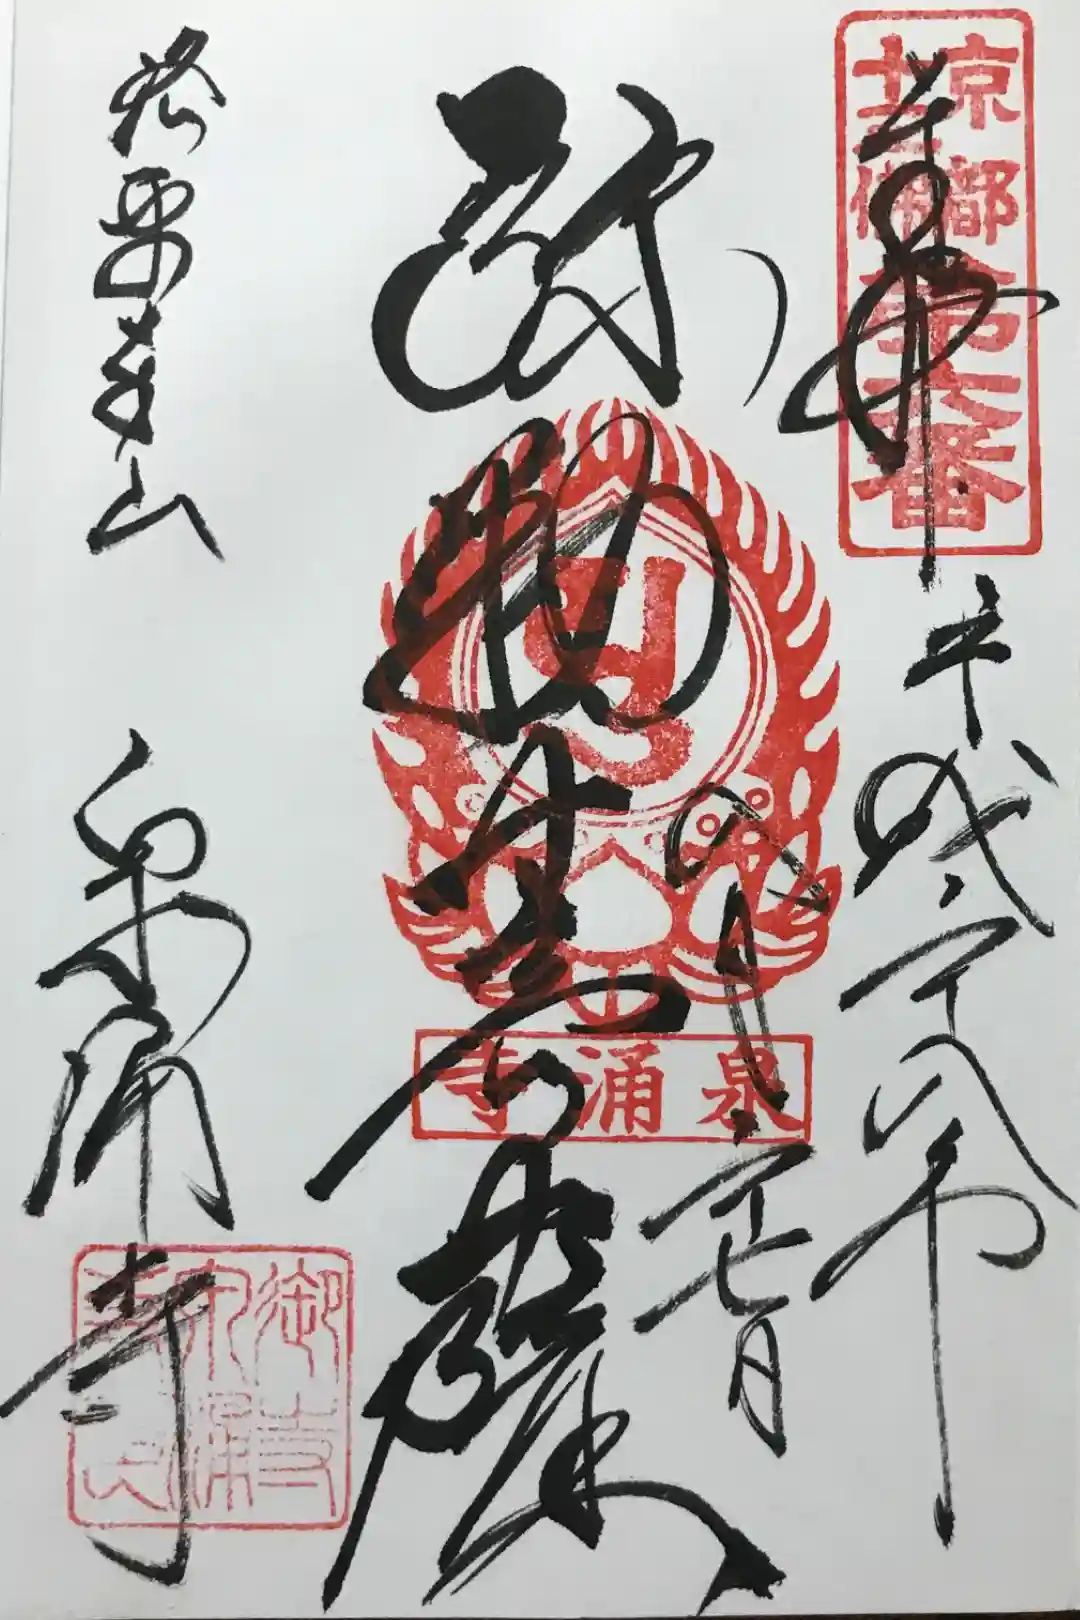 京都
十三佛
第六番
奉拝
平成二十八年
月二十七日
弥勒菩薩
泉涌寺
山
泉涌寺
御寺
泉涌
寺印